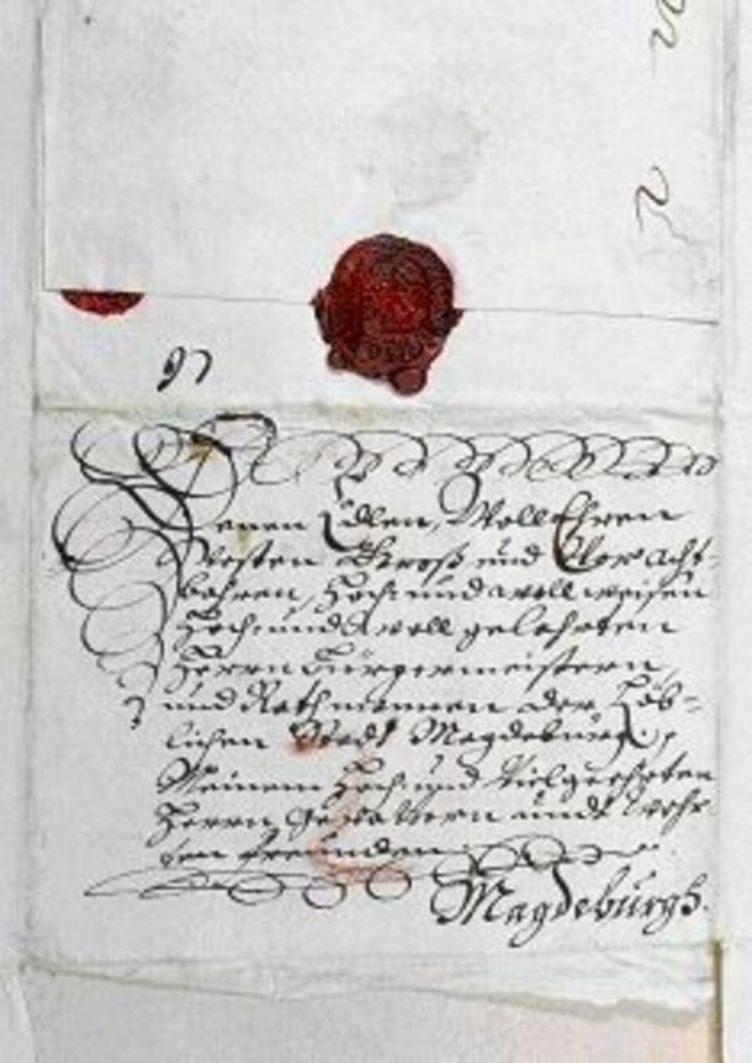 Denen Edlen, Woll Ehren
Vesten Groß und Voracht-
bahren, Hoch und woll weisen
Hoch und woll gelahrten
Herrn Bürgermeistern
und Rathmannen der Löb-
lichen Stadt Magdeburg,
Meinem Hoch und Vielgeehrten
Herrn Gevattern undt wehr-
ten freunden
Magdeburgk.